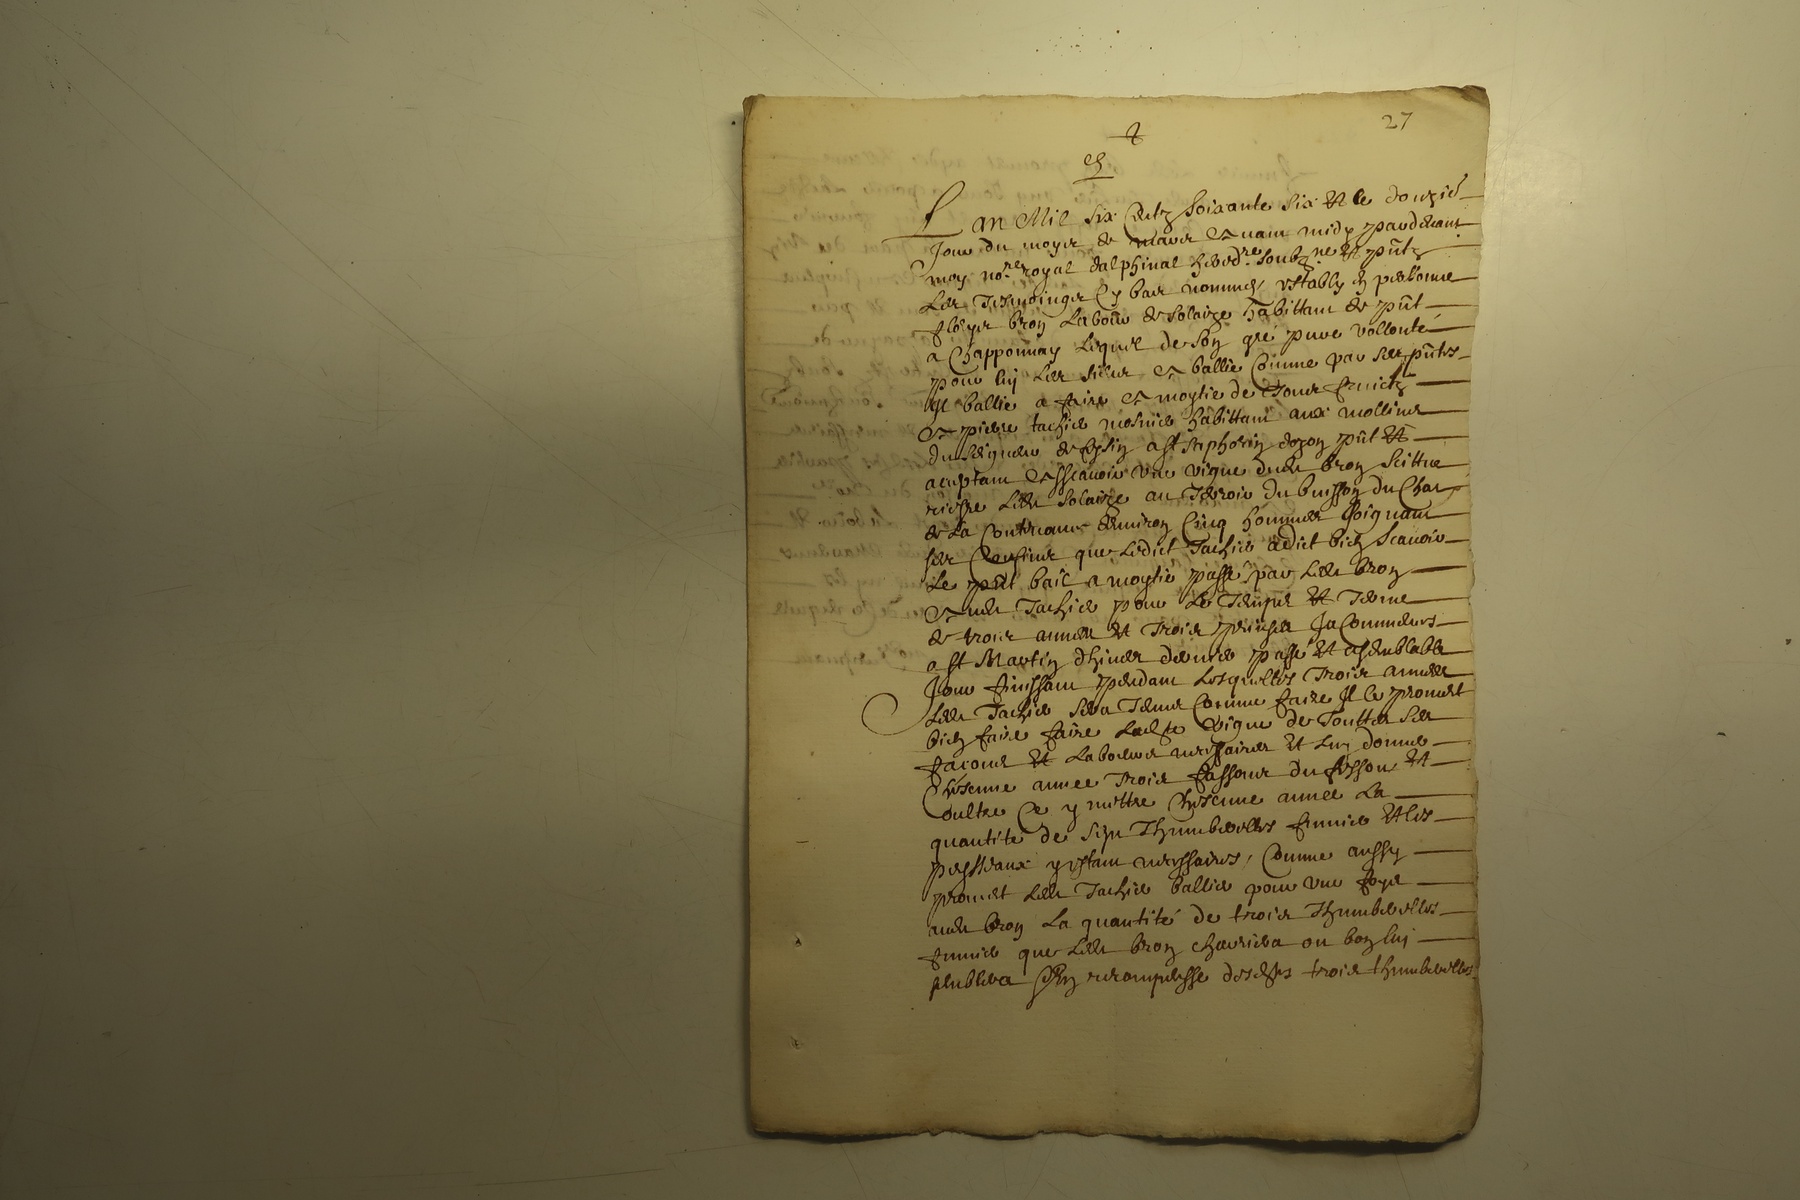 27
Lan Mil six Centz soixante six et le douzie
Jour du moys de mars avant midy pardevant
moy no.re royal dalphinal heredre soubz.ne et pntz
Les Tesmoingz Cy bas nommes, estably en personne
bron Labour de Solaize habittant de pnt
a Chapponnay Lequel de son gré pure vollonté
pour luy Les siens a ballie Comme par ses pntes
Il ballie a faire a moytie de tous fruictz
a pierre tachier mosnier habittant aux mollins
du seigneur de a st Saphorin dozon pnt et
aceptant assavoir une vigne dudt bron scittue
riesre Ledt Solaize au Terroir du buisson du Char
de La Contenant denviron Cinq hommes Joignant
ses Confins que Ledict Tachier a dict bien scavoir
Le pnt bail a moytie passe par Ledt bron
audt Tachier pour Le Temps et Terme
de trois annees et Trois prinses Ja Commencés
a st Martin dhiver dernier passé et a semblable
Jour finissant pendant Lesquelles Trois annees
Ledt Tachier sera Tenu Comme faire Il le promet
bien faire faire Ladte vigne de Touttes ses
facons et Laboeurs necessaires et Luy donner
Chscune annee Trois fassons du fossou, et
oultre Ce y mettre Chscune annee La
quantite de sept Thumberelles fumier et les
peysseaux y estant necessaires, Comme aussy
promet Ledt Tachier ballier pour une foys
audt bron La quantité de trois Thumberelles
fumier que Ledt bron charriera ou bon luy
semblera En recompensse desdtes trois thumberelles